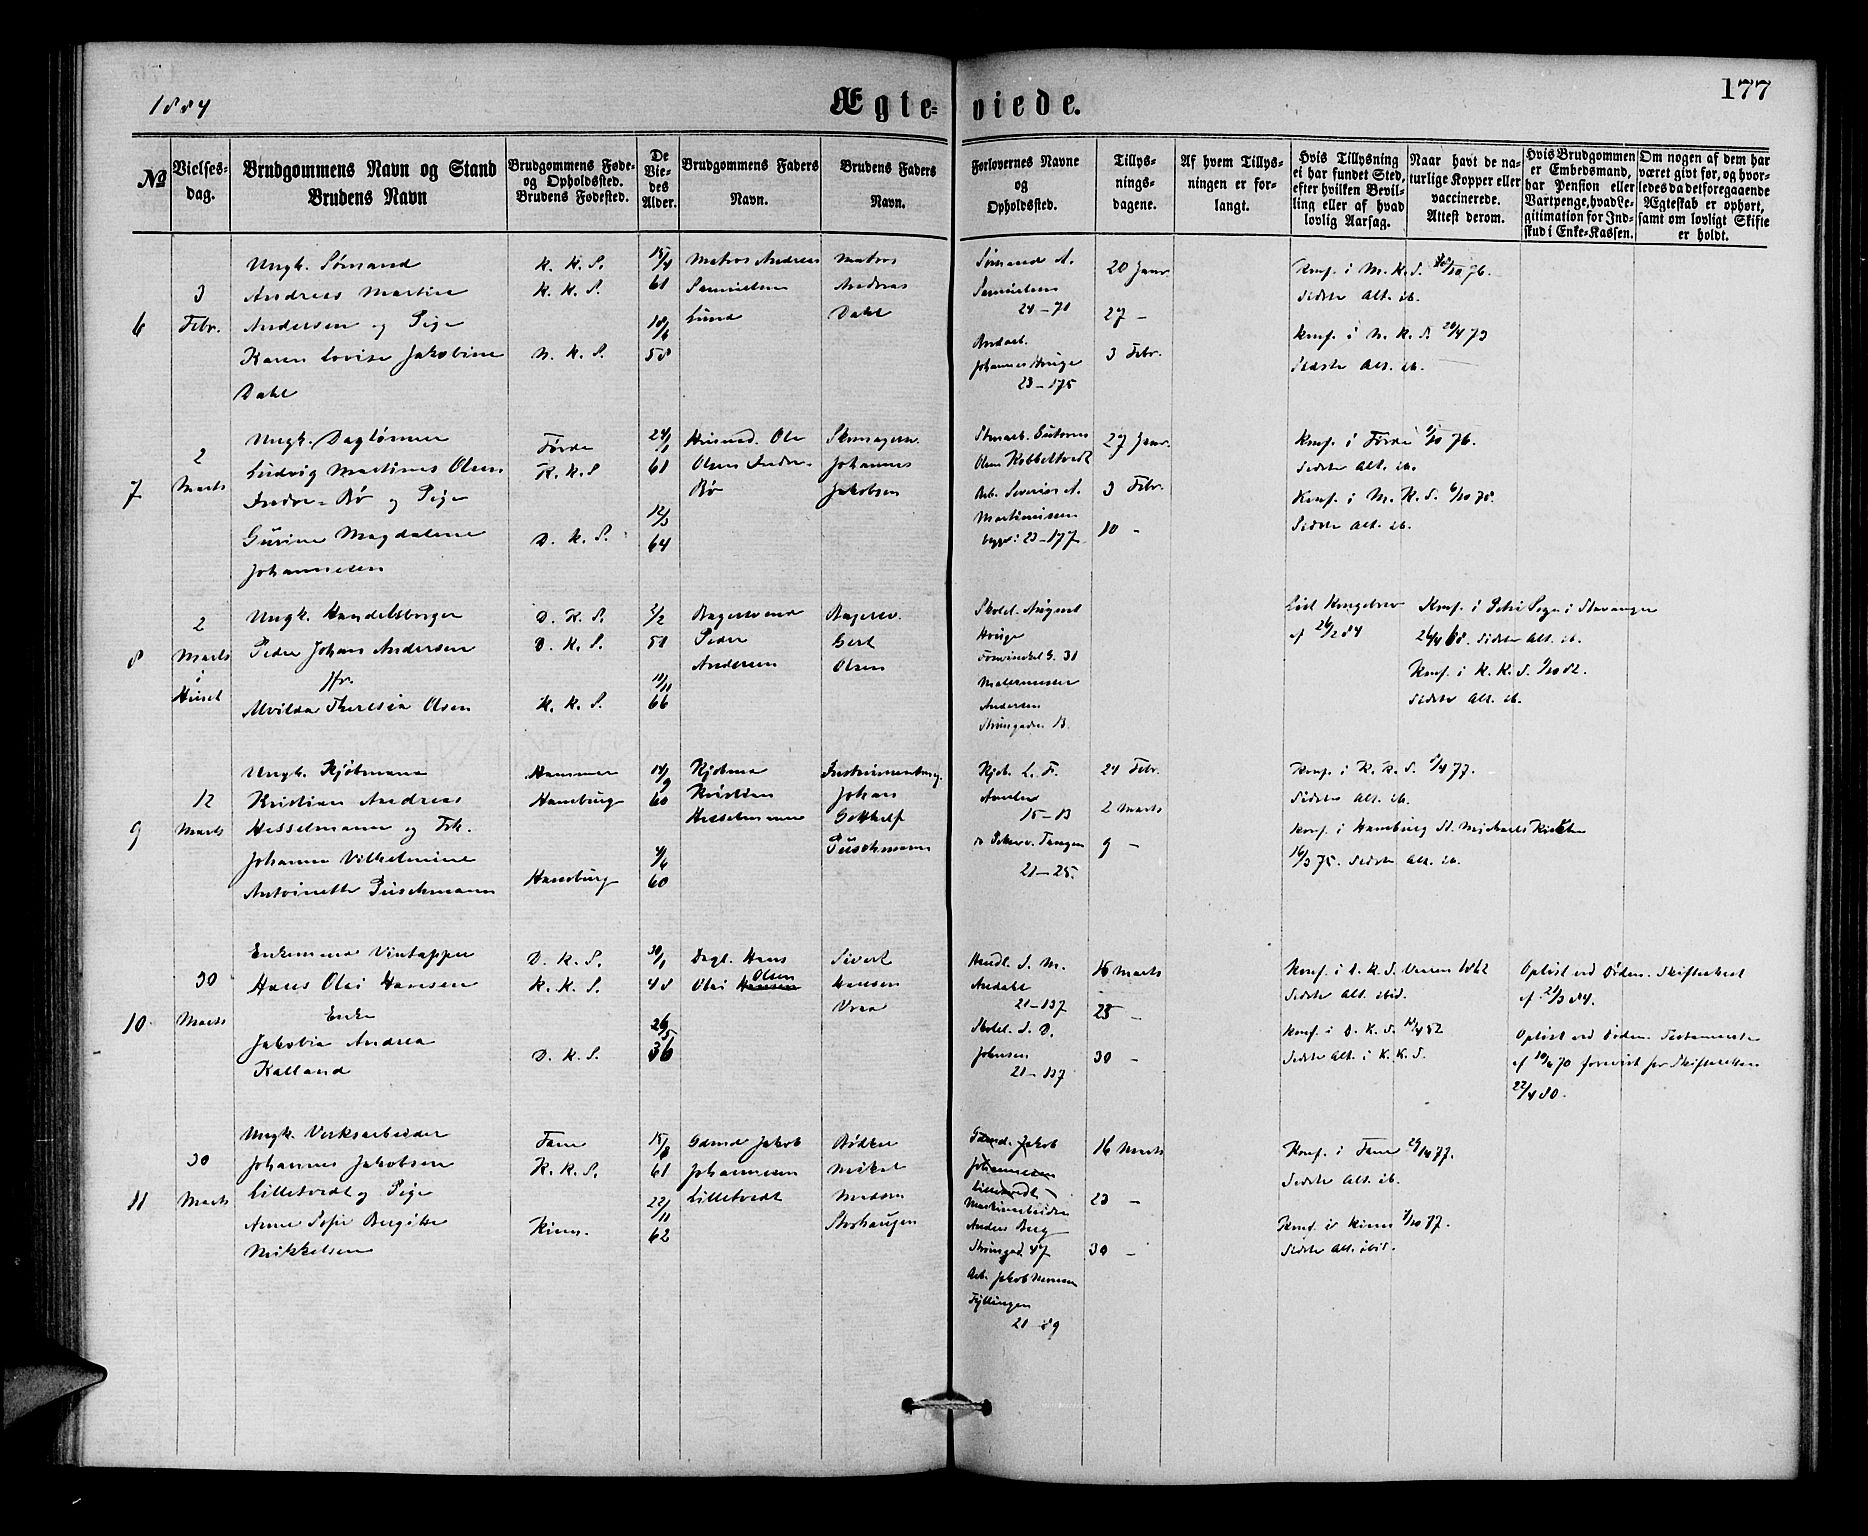 1884
Ægte- viede.
177
No
Vielses-
dag.
Brudgommens Navn og Stand
Brudens Navn
Brudgommens Føde-
og Opholdssted.
Brudens Fødested.
De
Vie-
des
Alder.
Brudgommens Faders
Navn.
Brudens Faders
Navn.
Forlovernes Navne
og
Opholdssted.
Tillys-
nings-
dagene.
Af hvem Tillys-
ningen er for-
langt.
Hvis Tillysning
ei har fundet Sted,
efter hvilken Bevil-
ling eller af hvad
lovlig Aarsag.
Naar havt de na-
turlige Kopper eller
vaccinerede.
Attest derom.
Hvis Brudgommen
er Embedsmand,
har Pension eller
Vartpenge, hvad Le-
gitimation for Ind-
skud i Enke-Kassen.
Om nogen af dem har
været givt før, og hvor-
ledes da det foregaaende
Ægteskab er ophørt,
samt om lovligt Skifte
er holdt.
6
3
Febr.
Ungk. Sømand
Andreas Martin
Andersen og Pige
Karen Lovise Jakobine
Dahl
K. K. S.
K. K. S.
N. K. S.
61
58
Matros Andreas
Samuelsen
Lund
Matros
Andreas
Dahl
Sømand A.
Samuelsen
24 – 70
Johannes Hauge
23 – 175
20 Janr.
27 –
3 Febr.
Konf. i M. K. S. 76.
Sidste Alt. ib.
Konf. i N. K. S. 20/4 73
Sidste Alt. ib.
7
2
Marts
Ungk. Daglønner
Ludvig Martinus Olsen
Indre-Bø og Pige
Gurine Magdalene
Johannesen
Førde
K. K. S
D. K. S.
24/1
61
12/3
64
Husmd. Ole
Olsen Indre-
Bø
Skomagersv.
Johannes
Jakobsen
Olsen Kobbeltvedt
Arb. Severin A.
Martinussen
23 – 177
27 Janr.
3 Febr.
10 –
Konf. i Førde 1/10 76.
Sidste Alt. ib.
Konf. i M. K. S. 6/10 78.
Sidste Alt. ib.
8
2
Marts
i
Huset
Ungk. Handelsborger
Peder Johan Andersen
Jfr.
Alvilda Theresia Olsen
D. K. S.
D. K. S.
K. K. S.
2/2
51
11/11
66
Bagersvend
Peder
Andersen
Bagersv.
Gert
Olsen
Skold. August
Hauge
31
Malermester
Andersen
Strømgaden 13
Lid Kongebrev
af 26/2 84
Konf. i Petri Sogn i Stavanger
26/4 68. Sidste Alt. ib.
Konf. i K. K. S. 1/10 82.
Sidste Alt. ib.
9
12
Marts
Ungk. Kjøbmand
Kristian Andreas
Hesselmann og Frk.
Johanne Vilhelmine
Antoinette Puschmann
Hammer
Hamburg
Hamburg
14/9
60
4/6
60
Kjøbmd
Kristian
Hesselmann
Instrumentmag.
Johan
Gotthelf
Puschmann
Kjøb. L. F.
15 – 13
21 – 25.
24 Febr.
2 Marts
9 –
Konf. i K. K. S. 77.
Sidste Alt. ib.
Konf. i Hamburg St. Michaels Kirke
16/3 75. Sidste Alt. ib.
10
30
Marts
Enkemand Vintapper
Hans Olai Hansen
Enke
Jakobia Andrea
Kalland
D. K. S.
K. K. S.
D. K. S.
30/1
48
26/5
36
Dagl. Hans
Olai Hansen Olsen
Sivert
Hansen
Vraa
Handl. S. M.
Andahl
21 – 137
Skold. S. D.
Johnsen
21 – 137
16 Marts
23 –
30 –
Konf. i D. K. S. Vaaren 1852
Sidste Alt. ibid.
Konf. i D. K. S. 82
Sidste Alt. i K. K. S.
Opløst ved Døden. Skifteattest
af 21/3 84.
Opløst ved Døden. Testamente
af 70 forevist for Skifteretten
22/4 80.
11
30
Marts
Ungk. Verksarbeider
Johannes Jakobsen
Lilletvedt og Pige
Anne Sofie Bergitte
Mikkelsen
Fane
K. K. S.
Kinn.
15/8
61
22/11
62
Gdmd Jakob
Johannesen
Lilletvedt
Bødker
Mikal
Madsen
Storhaugen
Gdmd. Jakob
Johannesen
Lilletvedt –
Maskinarbeider
Anders Berg
Strømgad. 47
Arb. Jakob Monsen
Fyllingen
21 – 89
16 Marts
23 –
30 –
Konf. i Fane 29/4 77.
Sidste Alt. ib.
Konf. i Kinn 7/10 77.
Sidste Alt. ibid.